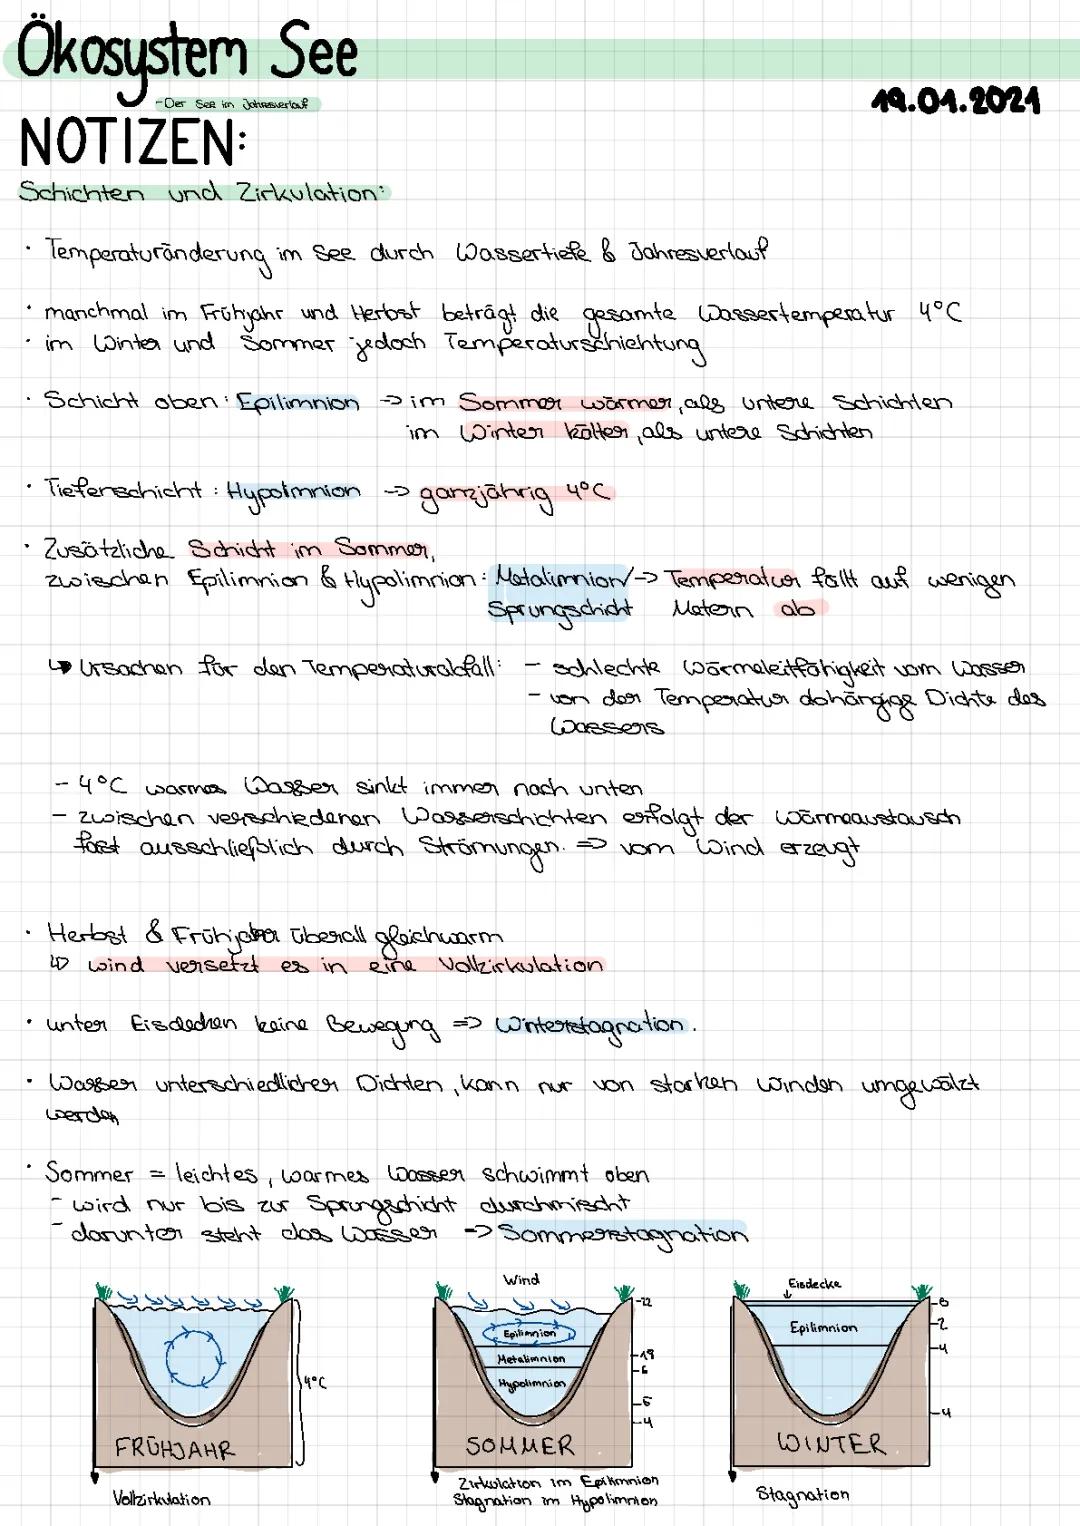 Ökosystem See
-Der See im Jahresverlauf
19.01.2021
NOTIZEN:
Schichten und Zirkulation:
· Temperaturänderung im See durch Wassertiefe & Jahresverlauf
· manchmal im Frühjahr und Herbst beträgt die gesamte Wassertemperatur 4°C
· im Winter und Sommer jedoch Temperaturschichtung
· Schicht oben: Epilimnion -> im Sommer wärmer, als untere Schichten
im Winter kälter, als untere Schichten
· Tiefenschicht: Hypolmnion -> ganzjährig 4°C
· Zusätzliche Schicht im Sommer,
zwischen Epilimnion & Hypolimnion: Metalimnion/-> Temperatur fällt auf wenigen
Sprungschicht Metern ab
↳ Ursachen für den Temperaturabfall: - schlechte Wärmeleitfähigkeit vom Wasser
- von der Temperatur abhängige Dichte des
Wassers
- 4°C warmes Wasser sinkt immer nach unten
- zwischen verschiedenen Wasserschichten erfolgt der Wärmeaustausch
fast ausschließlich durch Strömungen. => vom Wind erzeugt
· Herbst & Frühjahr überall gleichwarm
↳ wind versetzt es in eine Vollzirkulation
· unter Eisdecken keine Bewegung => Winterstagnation.
· Wasser unterschiedlicher Dichten, kann nur von starken winden umgewälzt
werden
· Sommer = leichtes, warmes Wasser schwimmt oben
- wird nur bis zur Sprungschicht durchmischt
- darunter steht das Wasser -> Sommerstagnation
4°C
FRÜHJAHR
Vollzirkulation
Wind
-22
Epilimnion
-18
Metalimnion
-6
Hypolimnion
-5
-4
SOMMER
Zirkulation im Epilimnion
Stagnation im Hypolimnion
Eisdecke
-0
Epilimnion
-2
-4
-4
WINTER
Stagnation